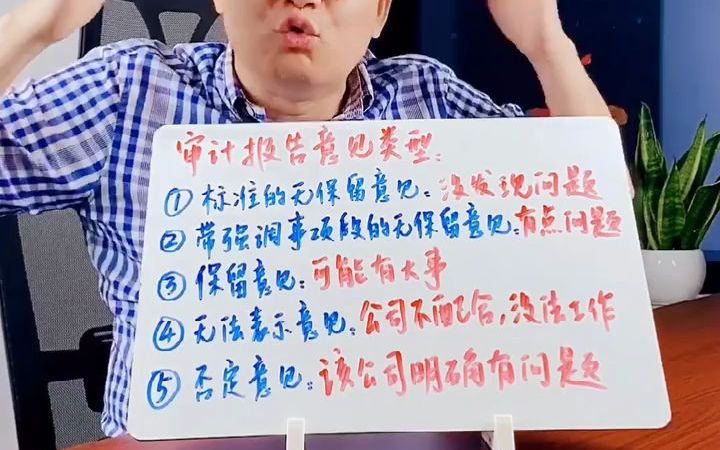 审计报告意见类型：
①标准的无保留意见：没发现问题
②带强调事项段的无保留意见：有点问题
③保留意见：可能有大事
④无法表示意见：公司不配合，没法工作
⑤否定意见：该公司明确有问题